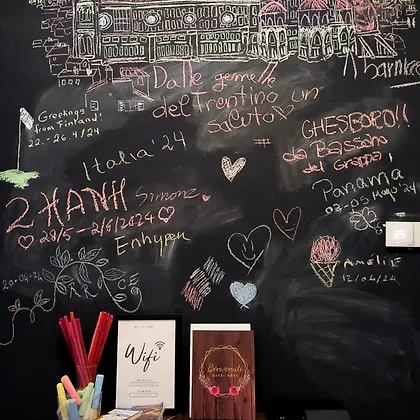 Dalle gemelle
del Trentino un
saluto
Greetings
from Finland!
22.-26.4/24
GHESBORO!!
da Bassano
del Grappa!
Italia '24
Panama
03-05 Mayo '24
2 HANH Simone
28/5 - 2/6/2024
Enhypen
AMÉLIE
12/04/24
20.04.24
Wifi
Benvenuti